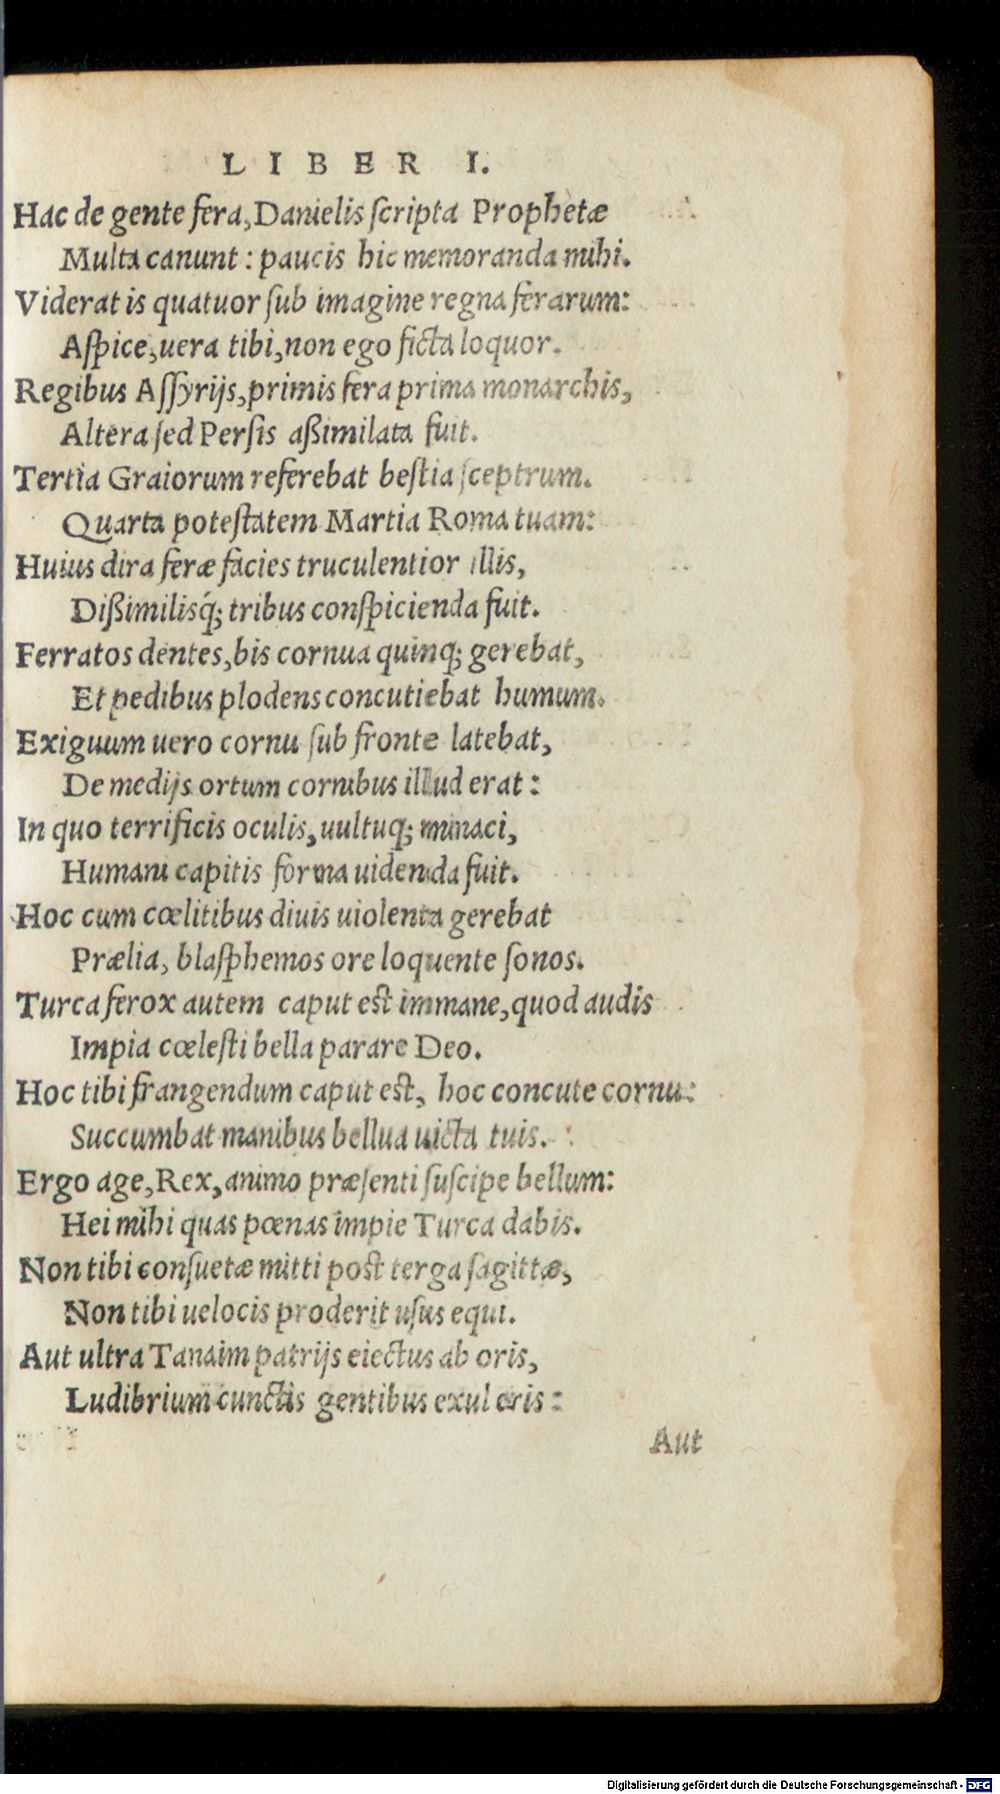 LIBER I.
Hac de gente fera, Danielis scripta Prophetæ
Multa canunt: paucis hic memoranda mihi.
Viderat is quatuor sub imagine regna ferarum:
Aspice, uera tibi, non ego ficta loquor.
Regibus Assyrijs, primis fera prima monarchis,
Altera sed Persis aßimilata fuit.
Tertia Graiorum referebat bestia sceptrum.
Quarta potestatem Martia Roma tuam:
Huius dira feræ facies truculentior illis,
Dißimilisq́; tribus conspicienda fuit.
Ferratos dentes, bis cornua quinq; gerebat,
Et pedibus plodens concutiebat humum.
Exiguum uero cornu sub fronte latebat,
De medijs ortum cornibus illud erat:
In quo terrificis oculis, uultuq; minaci,
Humani capitis forma uidenda fuit.
Hoc cum cœlitibus diuis uiolenta gerebat
Prælia, blasphemos ore loquente sonos.
Turca ferox autem caput est immane, quod audis
Impia cœlesti bella parare Deo.
Hoc tibi frangendum caput est, hoc concute cornu:
Succumbat manibus bellua uicta tuis.
Ergo age, Rex, animo præsenti suscipe bellum:
Hei mihi quas pœnas impie Turca dabis.
Non tibi consuetæ mitti post terga sagittæ,
Non tibi uelocis proderit usus equi.
Aut ultra Tanaim patrijs eiectus ab oris,
Ludibrium cunctis gentibus exul eris:
Aut
Digitalisierung gefördert durch die Deutsche Forschungsgemeinschaft - DFG